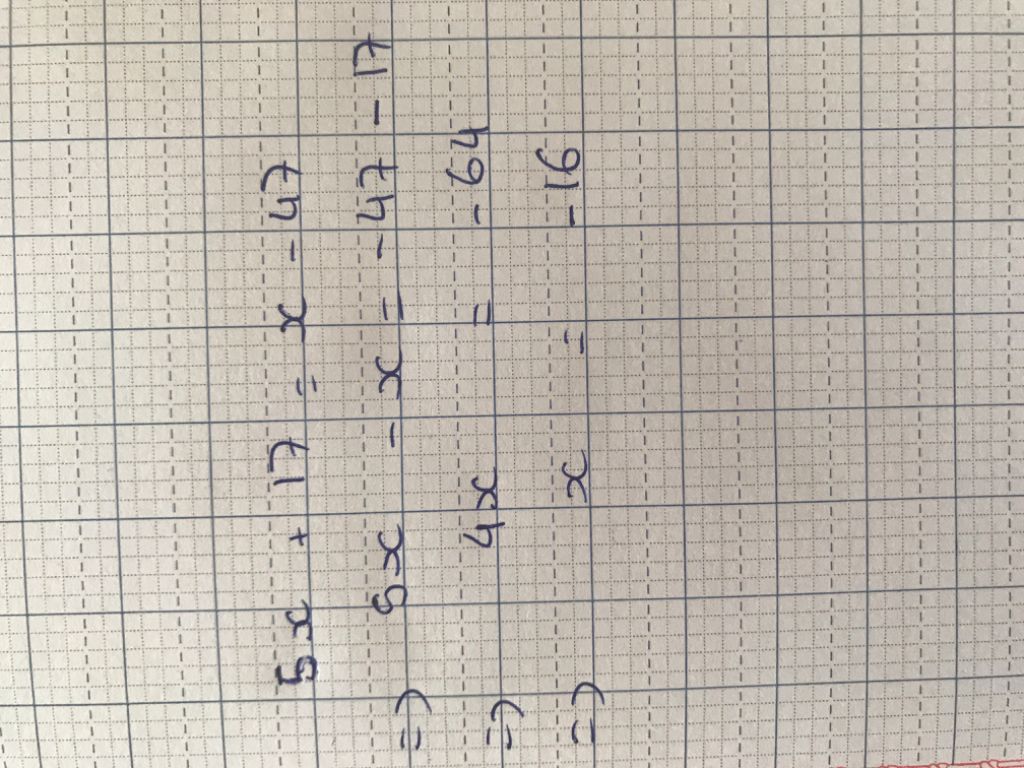 5x + 17 = x - 47
=> 5x - x = -47 - 17
=> 4x = -64
=> x = -16